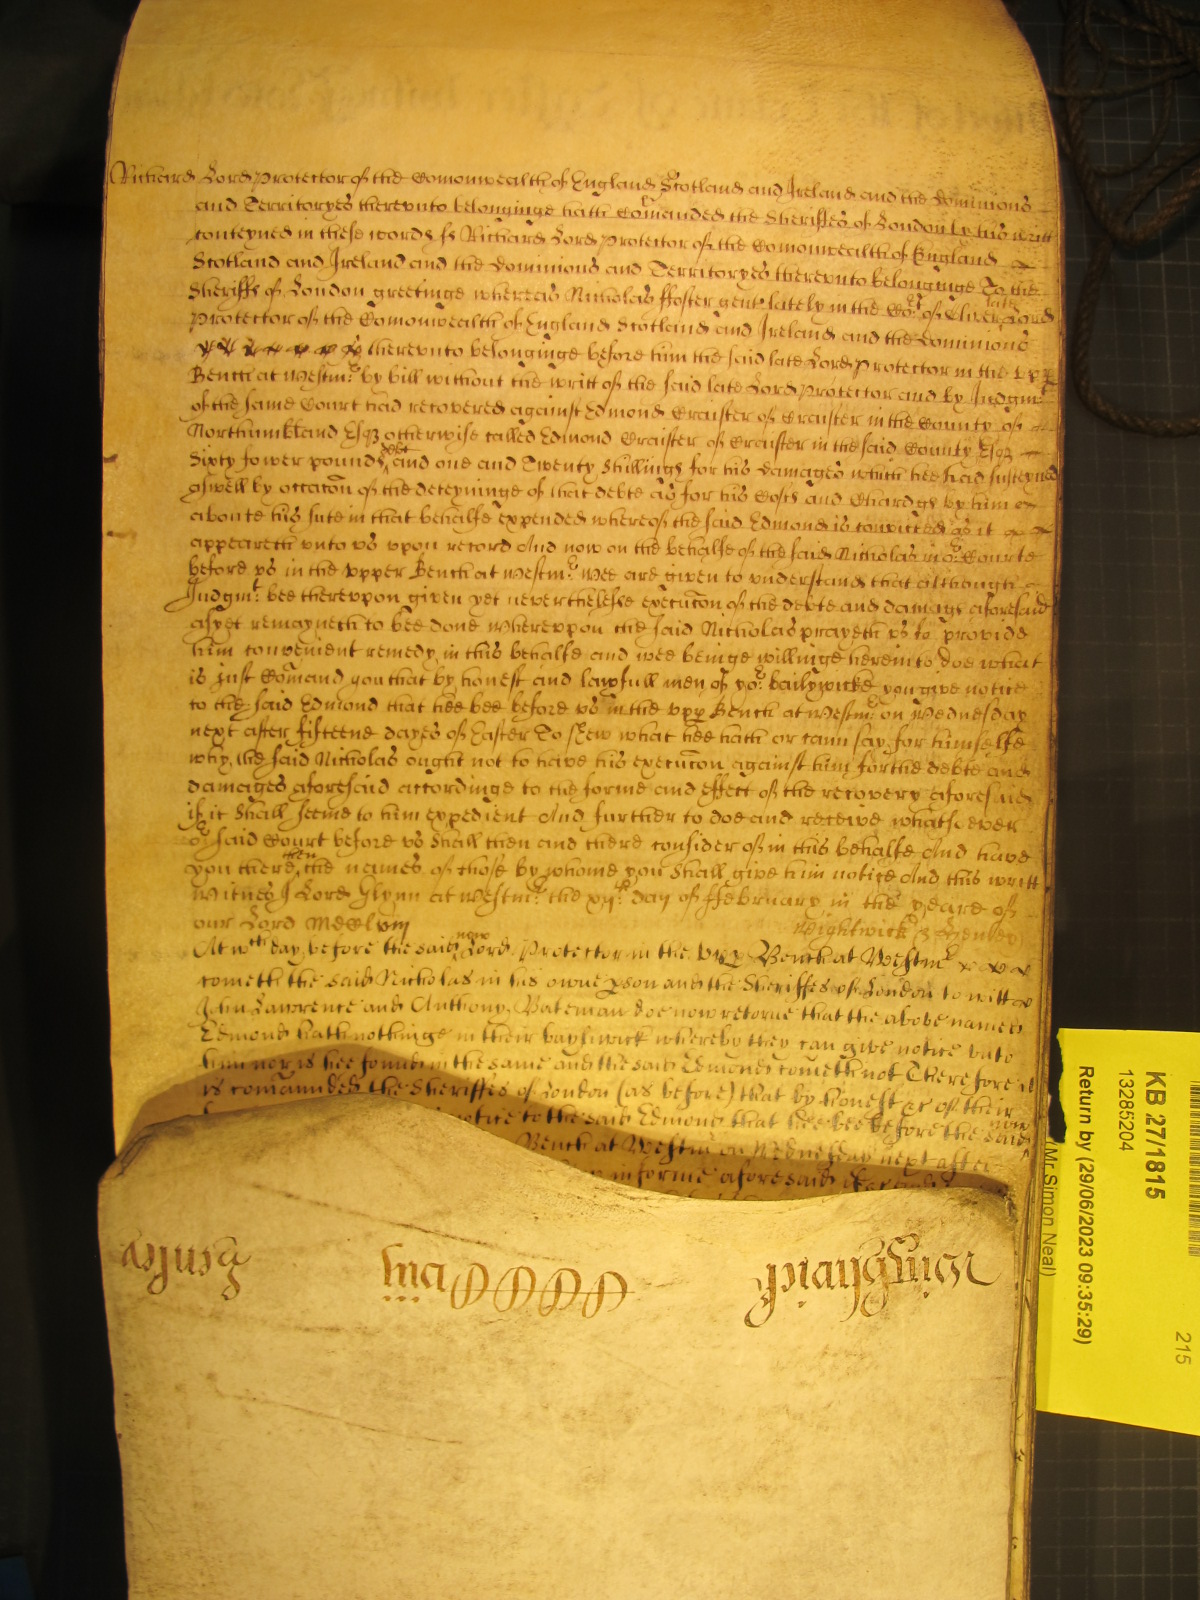 Richard Lord Protector of the Comonwealth of England Scotland and Ireland and the dominions
and Territoryes therevnto belonginge hath Comanded the Sheriffes of London by his writt
conteyned in these words ss Richard Lord Protector of the Comonwealth of England
Scotland and Ireland and the dominions and Territoryes therevnto belonginge To the
Sheriffs of London greetinge whereas Nicholas ffoster gent lately in the Cort of Oliver late Lord
Protector of the Comonwealth of England Scotland and Ireland and the dominions
therevnto belonginge before him the said late Lord Protector in the vpp
Bench at Westmr by bill without the writt of the said late Lord Protector and by Judgmt
of the same Court had recovered against Edmond Craister of Craister in the County of
Northumbland Esqr otherwise called Edmond Craister of Craister in the said County Esqr
Sixty fower pounds debt and one and Twenty Shillings for his damages which hee had susteyned
aswell by occacon of the deteyninge of that debte as for his Costs and Chardgs by him
aboute his sute in that behalfe expended whereof the said Edmond is convicted as it
appeareth vnto vs vpon record And now on the behalfe of the said Nicholas in or Courte
before vs in the vpper Bench at Westmr Wee are given to vnderstand that although
Judgmt bee therevpon given yet neverthelesse execucon of the debte and damags aforesaid
as yet remayneth to bee done Wherevpon the said Nicholas prayeth vs to provide
him convenient remedy in this behalfe and wee beinge willinge herein to doe what
is just Comand you that by honest and lawfull men of yor bailywicke you give notice
to the said Edmond that hee bee before vs in the vpp Bench at Westmr on Wednesday
next after fifteene dayes of Easter To shew what hee hath or cann say for himselfe
why the said Nicholas ought not to have his execucon against him for the debte and
damages aforesaid accordinge to the forme and effect of the recovery aforesaid
if it shall seeme to him expedient And further to doe and receive whatsoever
or said Court before vs shall then and there consider of in this behalfe And have
you there then the names of those by whome you shall give him notice And this writt
Witnes J Lord Glynn at Westmr the xijth day of ffebruary in the yeare of
our Lord MDCLviij Wightwick & Henley
At wch day before the said now Lord Protector in the vpp Bench at Westmr
cometh the said Nicholas in his owne pson and the Sheriffes of London to witt
John Lawrence and Anthony Bateman doe now retorne that the above named
Edmond hath nothinge in their baylywick whereby they can give notice vnto
him nor is hee found in the same and the said Edmund cometh not Therefore it
is comannded the Sheriffes of London (as before) that by honest &c of their
notice to the said Edmond that hee bee before the said now
Bench at Westmr on Wednesday next after
in forme aforesaid
KB 27/1815
13285204
Return by (29/06/2023 09:35:29)
(Mr Simon Neal)
215